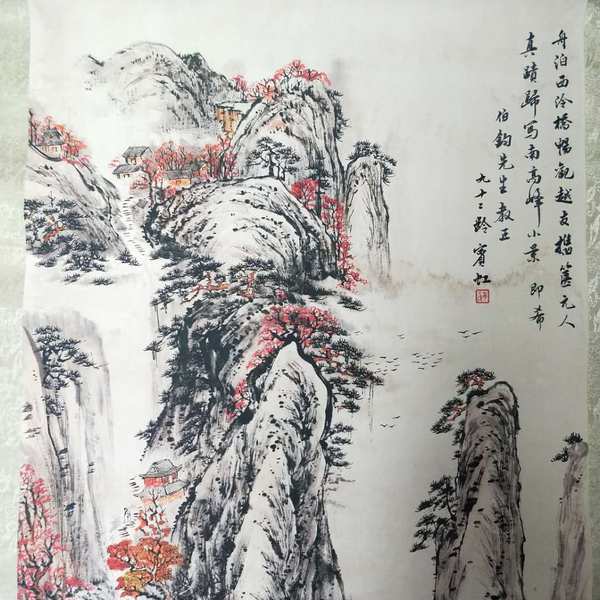 舟泊西泠橋暢観越友携箧元人
真蹟歸写南高峰小景即希
伯鈞先生教正
九十二龄賓虹